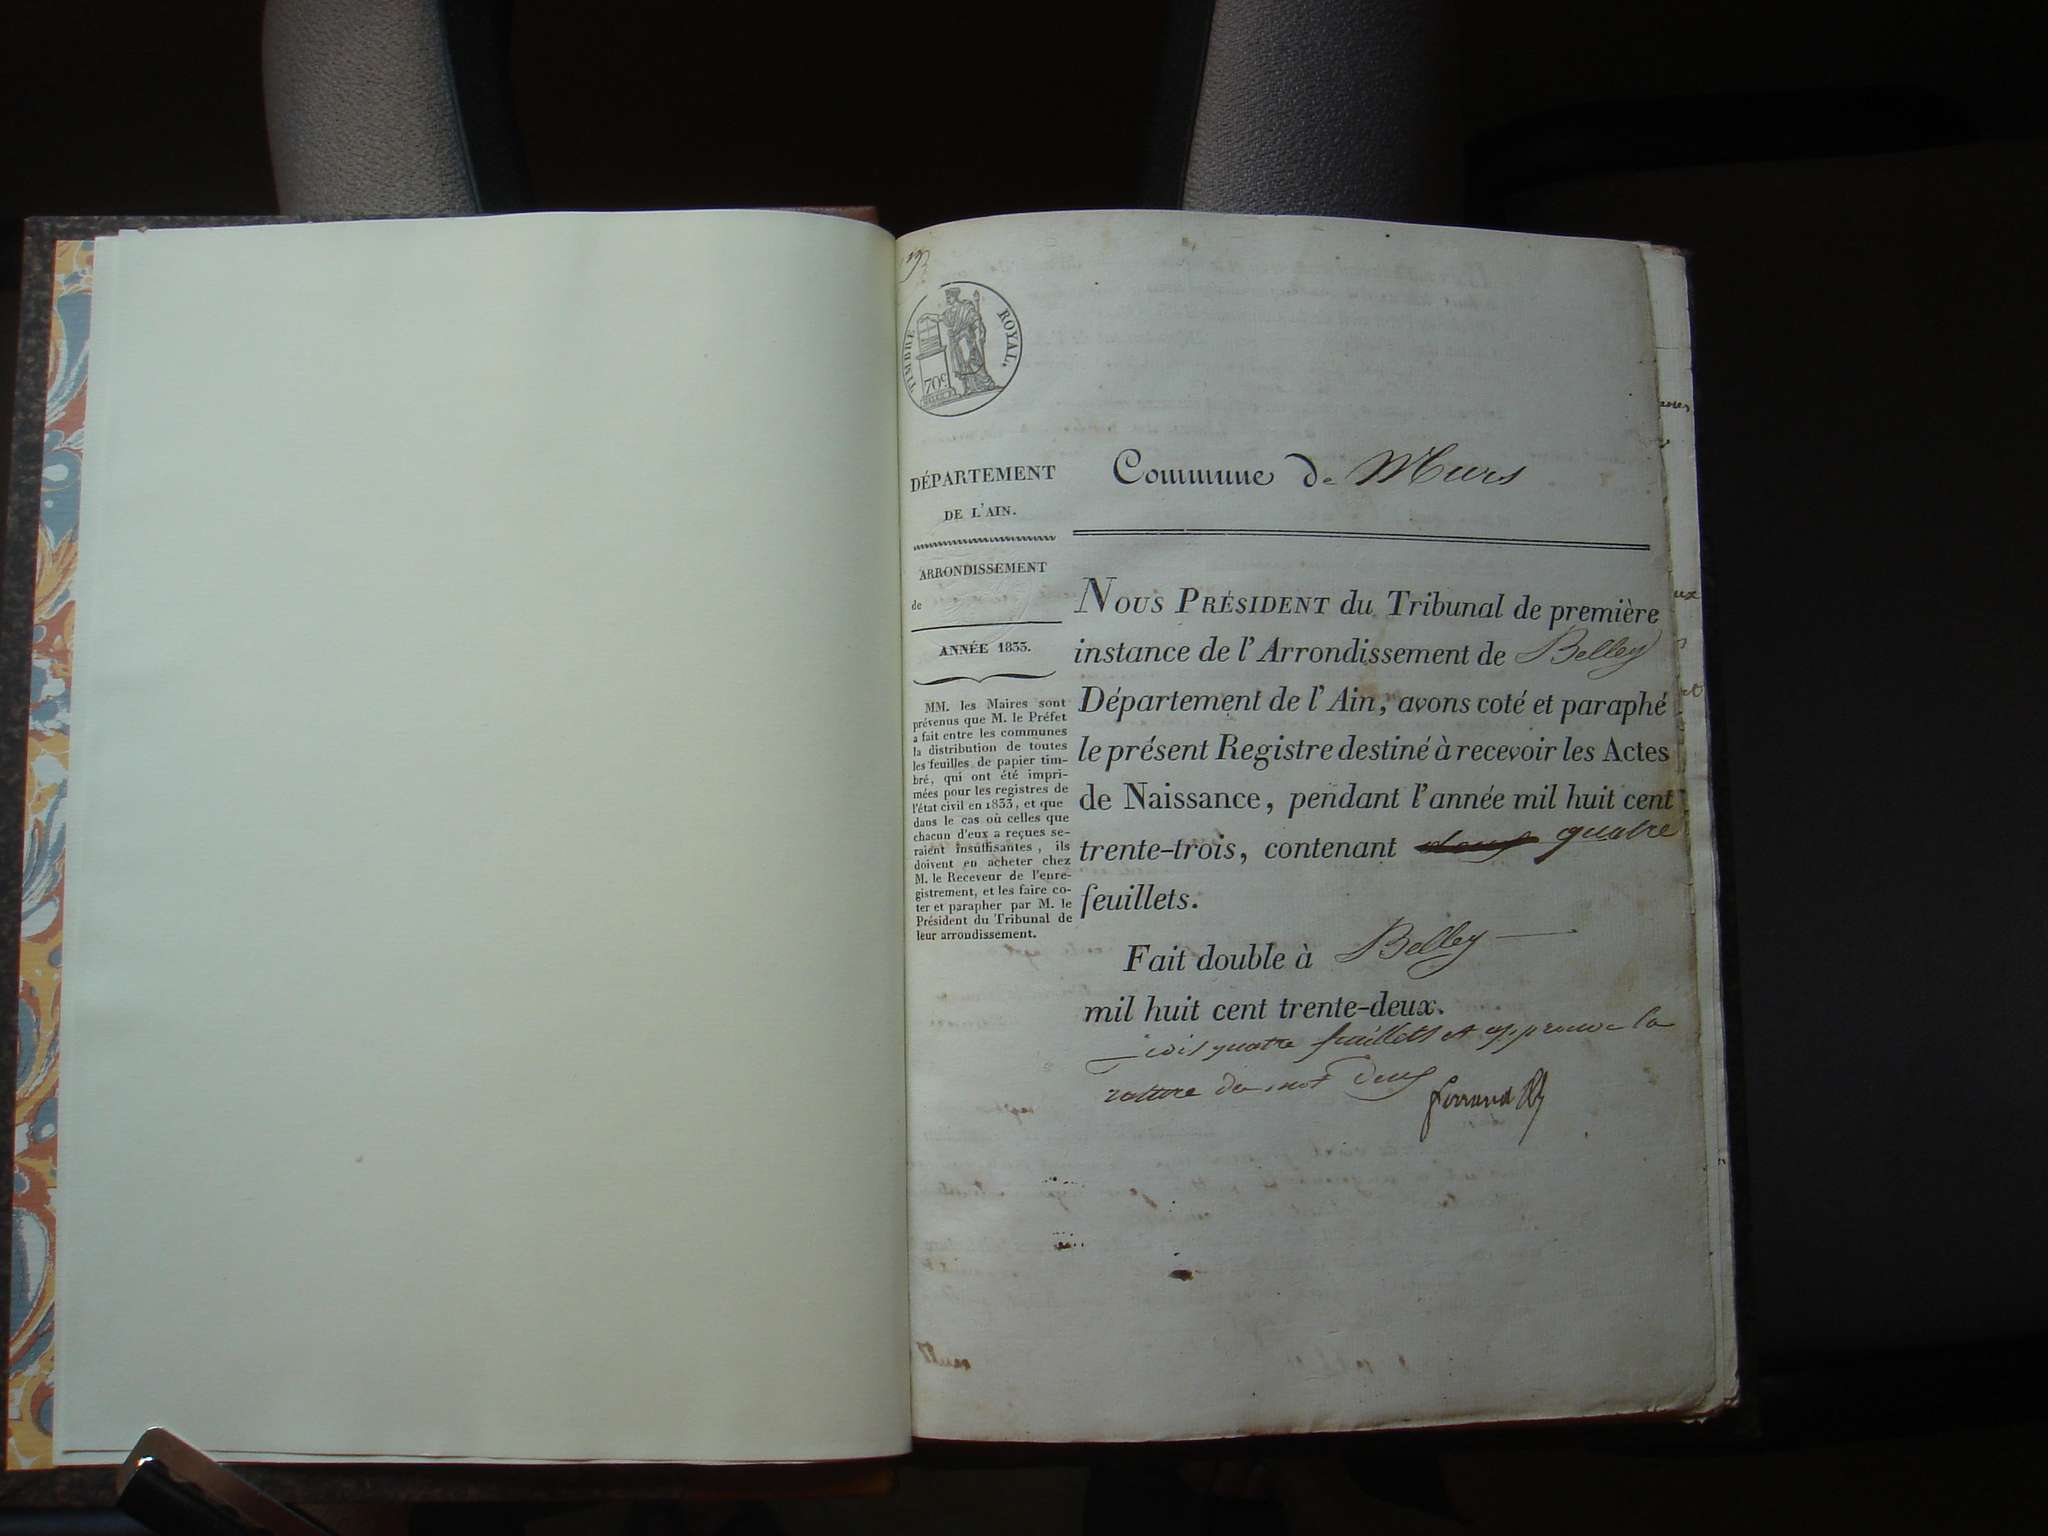 TIMBRE ROYAL.
70c
DÉPARTEMENT
DE L'AIN.
ARRONDISSEMENT
de
ANNÉE 1833.
MM. les Maires sont
prévenus que M. le Préfet
a fait entre les communes
la distribution de toutes
les feuilles de papier tim-
bré, qui ont été impri-
mées pour les registres de
l'état civil en 1833, et que
dans le cas où celles que
chacun d'eux a reçues se-
raient insuffisantes, ils
doivent en acheter chez
M. le Receveur de l'enre-
gistrement, et les faire co-
ter et parapher par M. le
Président du Tribunal de
leur arrondissement.
Commune de Murs
NOUS PRÉSIDENT du Tribunal de première
instance de l'Arrondissement de Belley
Département de l'Ain, avons coté et paraphé
le présent Registre destiné à recevoir les Actes
de Naissance, pendant l'année mil huit cent
trente-trois, contenant deux quatre
feuillets.
Fait double à Belley
mil huit cent trente-deux.
quatre feuillets et approuve la
rature du mot deux